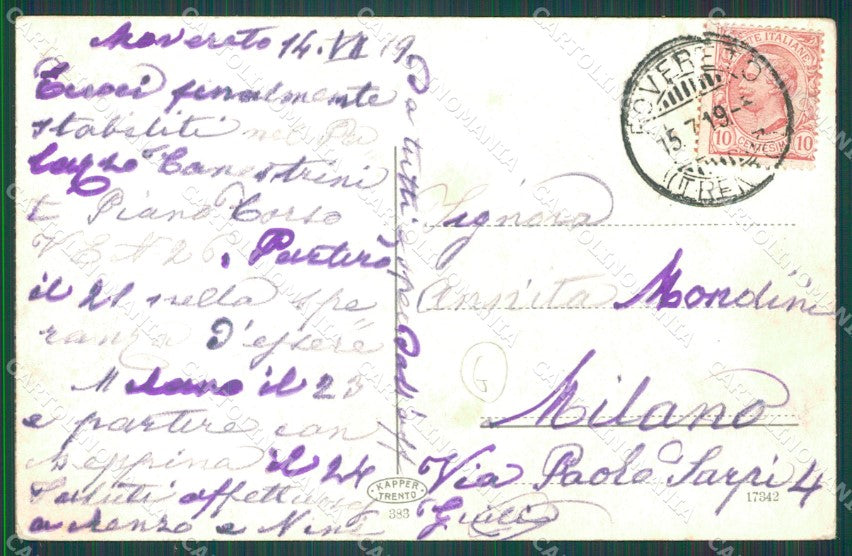 Rovereto 14.VII 19
Eccoci finalmente
stabiliti nel Pa
lazzo Canestrini
I Piano Corso
V.E. N 26. Partirò
il 21 nella spe
ranza d'essere
Milano il 23
e partire con
Beppina il 24
Saluti affettuosi
a Renzo e Nini
Da tutti
Giulio
Signora
Annita Mondini
Milano
Via Paolo Sarpi 4
ROVERETO
15.7.19
(TREN
POSTE ITALIANE
10 CENTESIMI 10
G
KAPPER
TRENTO
383
17342
CARTOLINOMANIA